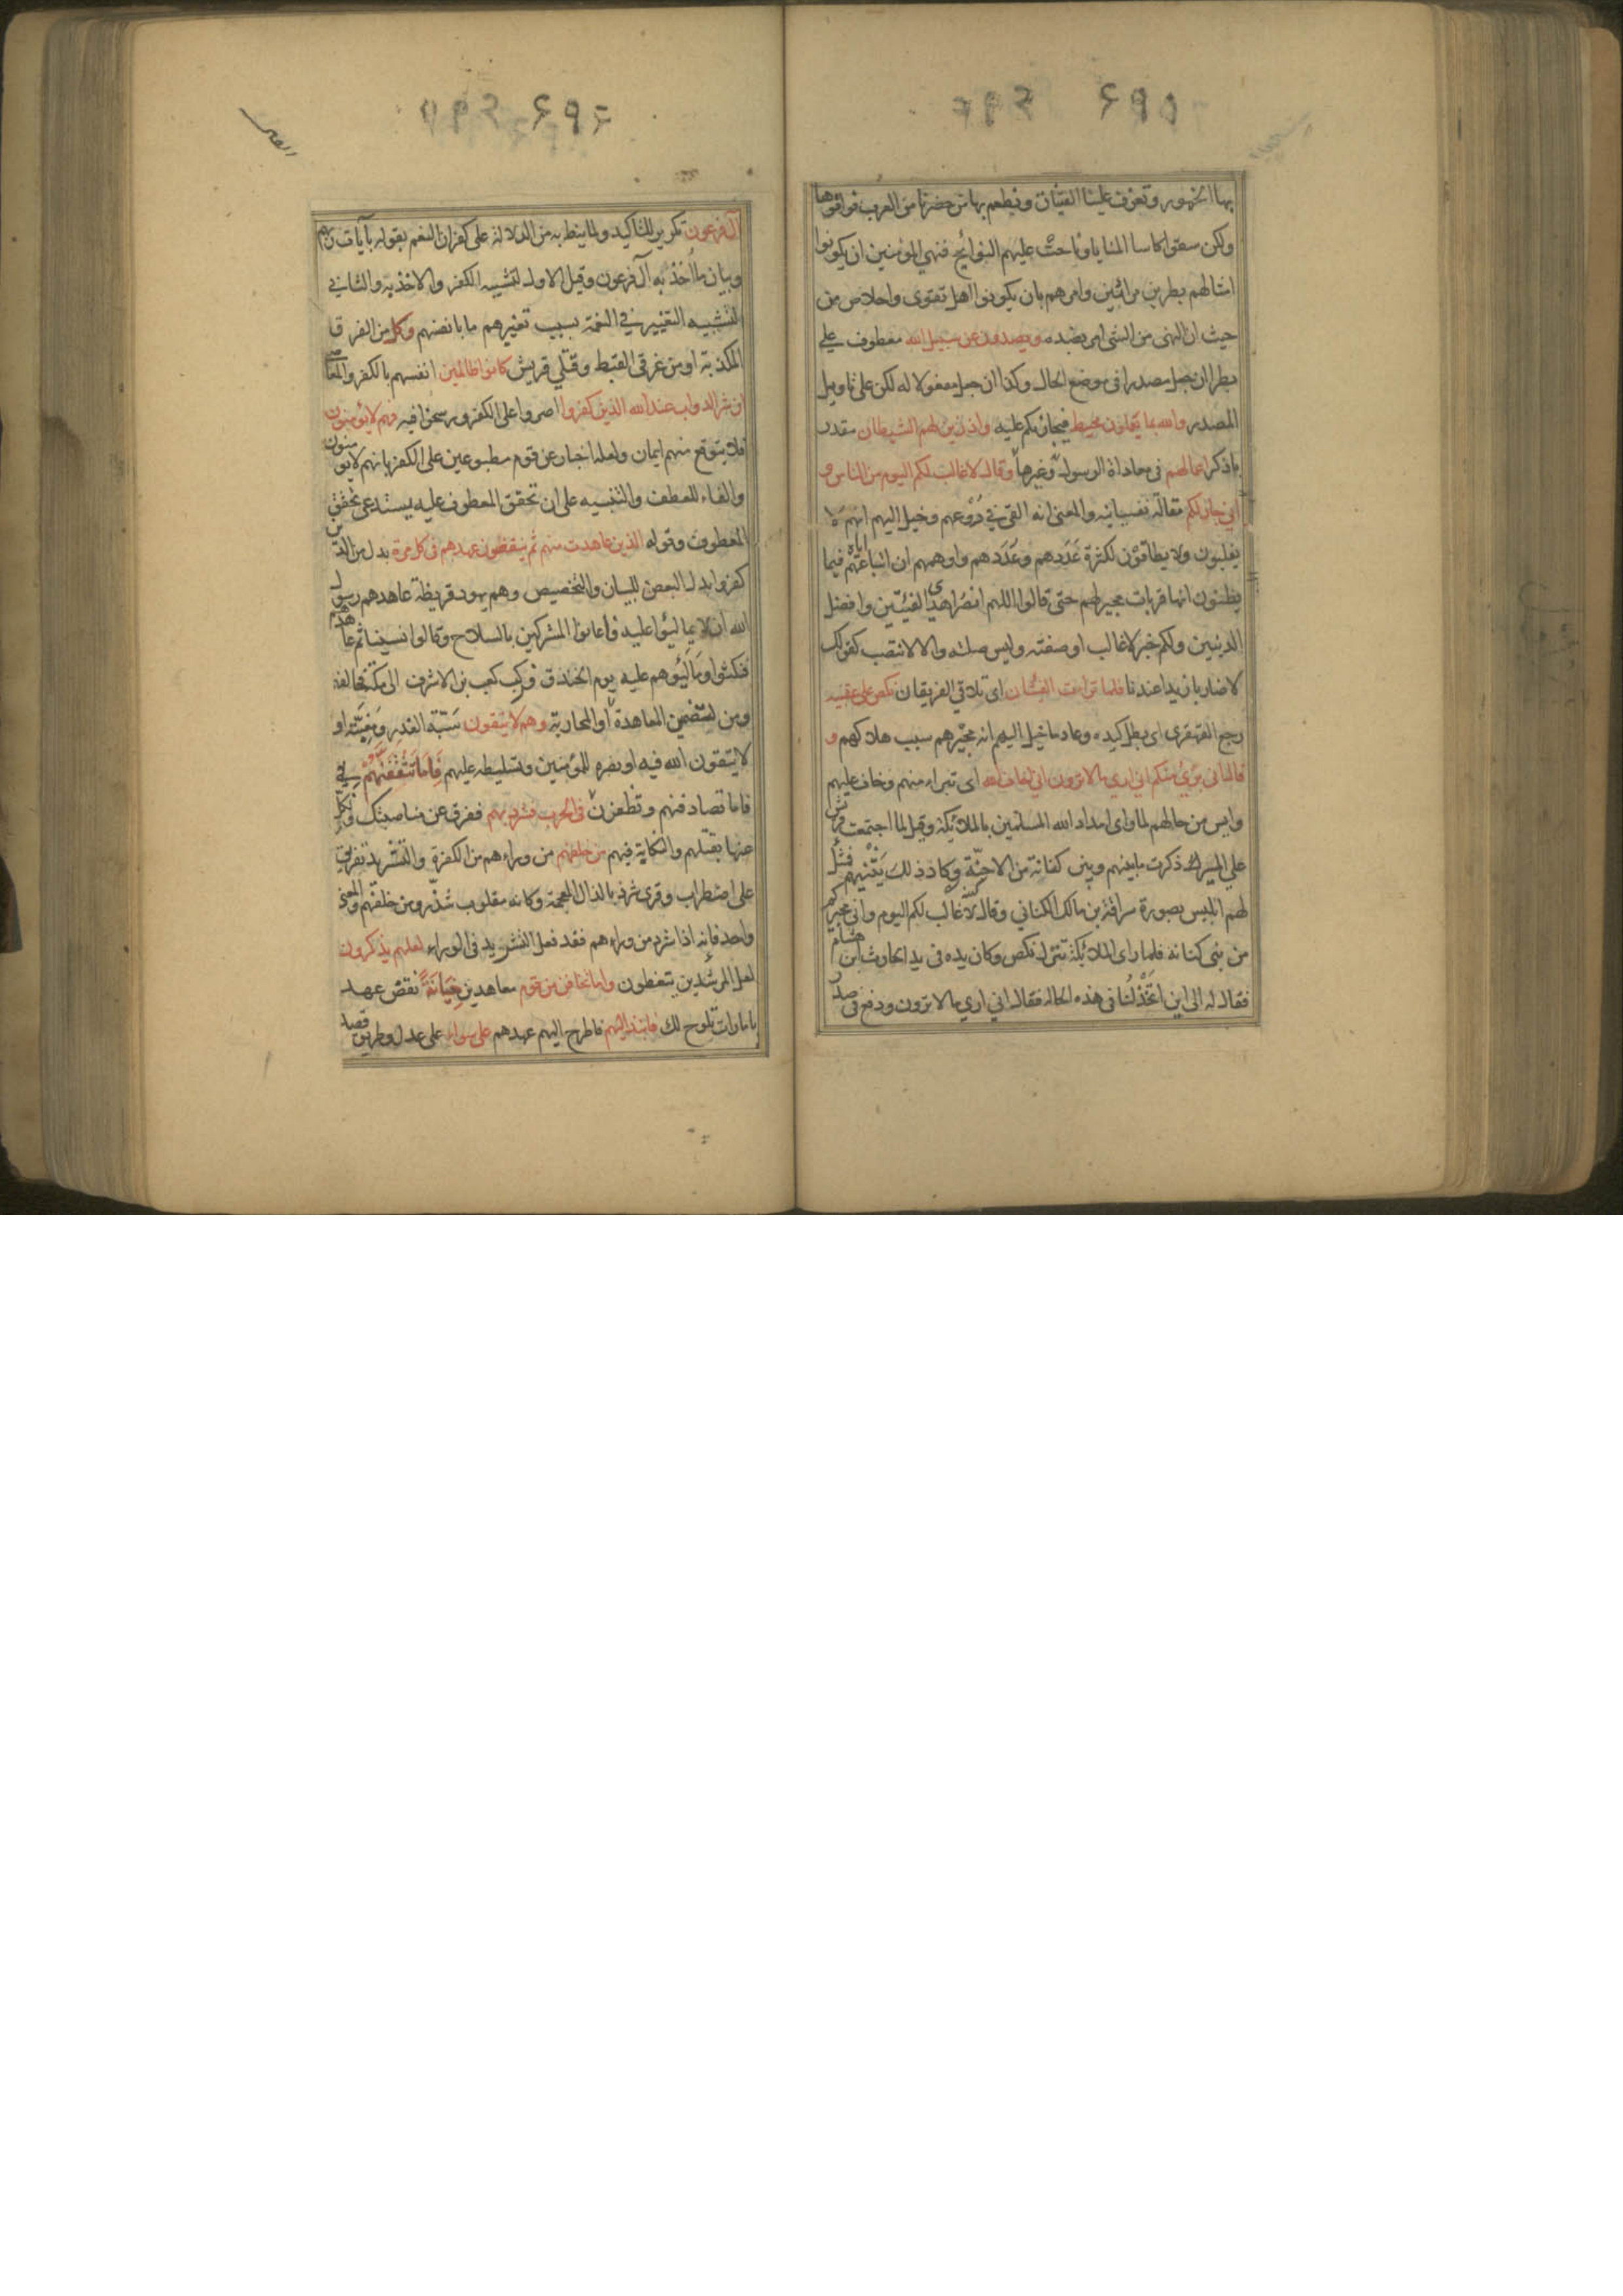 ٦٩٥
بها الخمور وتعزف علينا القينات ونطعم بها من حضرنا من العرب فوافوها
ولكن سقوا كاسا المنايا وناحت عليهم النوائح فنهي المؤمنين ان يكونوا
امثالهم بطرين مرائين وامرهم بان يكونوا اهل تقوى واخلاص من
حيث ان النهى من الشئ امر بضده ويصدون عن سبيل الله معطوف علي
بطرا ان جعل مصدرا فى موضع الحال وكذا ان جعل مفعولا له لكن على تاويل
المصدر والله بما يعملون محيط فيجازيكم عليه واذ زين لهم الشيطان مقدر
باذكر اعمالهم فى معاداة الرسول وغيرها وقال لا غالب لكم اليوم من الناس و
انى جار لكم مقالة نفسانية والمعنى انه القى في روعهم وخيل اليهم انهم لا
يغلبون ولا يطاقون لكثرة عَدَدهم وعُدَدهم واوهمهم ان اتباعهم اياه فيما
يظنون انها قربات مجير لهم حتى قالوا اللهم انصر اهدى الفئتين وافضل
الدينين ولكم خبر لا غالب او صفته وليس صلته والا لانتصب كقولك
لا ضاربا زيدا عندنا فلما تراءت الفئتان اى تلاقى الفريقان نكص على عقبيه
رجع القهقرى اى بطل كيده وعاد ما خيل اليهم انه مجيرهم سبب هلاكهم و
قال انى برئ منكم انى ارى ما لا ترون انى اخاف الله اى تبراء منهم وخاف عليهم
وايس من حالهم لما راى امداد الله المسلمين بالملائكة وقيل لما اجتمعت قريش
على المسير ذكرت ما بينهم وبين كنانة من الاحنة وكاد ذلك يثنيهم فتمثل
لهم ابليس بصورة سراقة بن مالك الكنانى وقال لا غالب لكم اليوم وانى مجيركم
من بنى كنانة فلما راى الملائكة تنزل نكص وكان يده فى يد الحارث ابن هشام
فقال له الى اين اتخذلنا فى هذه الحالة فقال انى ارى ما لا ترون ودفع فى صدر
٦٩٦
آل فرعون تكرير للتاكيد ولما نيط به من الدلالة على كفران النعم بقوله بآيات ربهم
وبيان ما اُخذ به آل فرعون وقيل الاول لتشبيه الكفر والاخذ به والثاني
لتشبيه التغيير في النعمة بسبب تغيرهم ما بانفسهم وكل من الفرق
المكذبة او من غرقى القبط وقتلي قريش كانوا ظالمين انفسهم بالكفر والمعاصي
ان شر الدواب عند الله الذين كفروا اصروا على الكفر ورسخوا فيه فهم لا يؤمنون
فلا يتوقع منهم ايمان ولعله اخبار عن قوم مطبوعين على الكفر بانهم لا يؤمنون
والفاء للعطف والتنبيه على ان تحقق المعطوف عليه يستدعى تحقق
المعطوف وقوله الذين عاهدت منهم ثم ينقضون عهدهم فى كل مرة بدل من الذين
كفروا بدل البعض للبيان والتخصيص وهم يهود قريظة عاهدهم رسول
الله ان لا يمالئوا عليه فاعانوا المشركين بالسلاح وقالوا نسينا ثم عاهدهم
فنكثوا ومالئوهم عليه يوم الخندق وركب كعب بن الاشرف الى مكة فحالفه
ومن لتضمن المعاهدة او المحاربة وهم لا يتقون سُبّة الغدر ومغبّته او
لا يتقون الله فيه او نصره للمؤمنين وتسليطه عليهم فاما تثقفنهم في
فاما تصادفنهم وتظفرن فى الحرب فشرد بهم ففرق عن مناصبتك ونكل
عنها بقتلهم والنكاية فيهم من خلفهم من وراءهم من الكفرة والتشريد تفريق
على اضطراب وقرى شرذ بالذال المعجمة وكانه مقلوب شذر ومن خلفهم والمعنى
واحد فانه اذا شرد من وراءهم فقد فعل التشريد فى الوراء لعلهم يذكرون
لعل المشردين يتعظون واما تخافن من قوم معاهدين خيانةً نقض عهد
بامارات تلوح لك فانبذ اليهم فاطرح اليهم عهدهم على سواء على عدل وطريق قصد